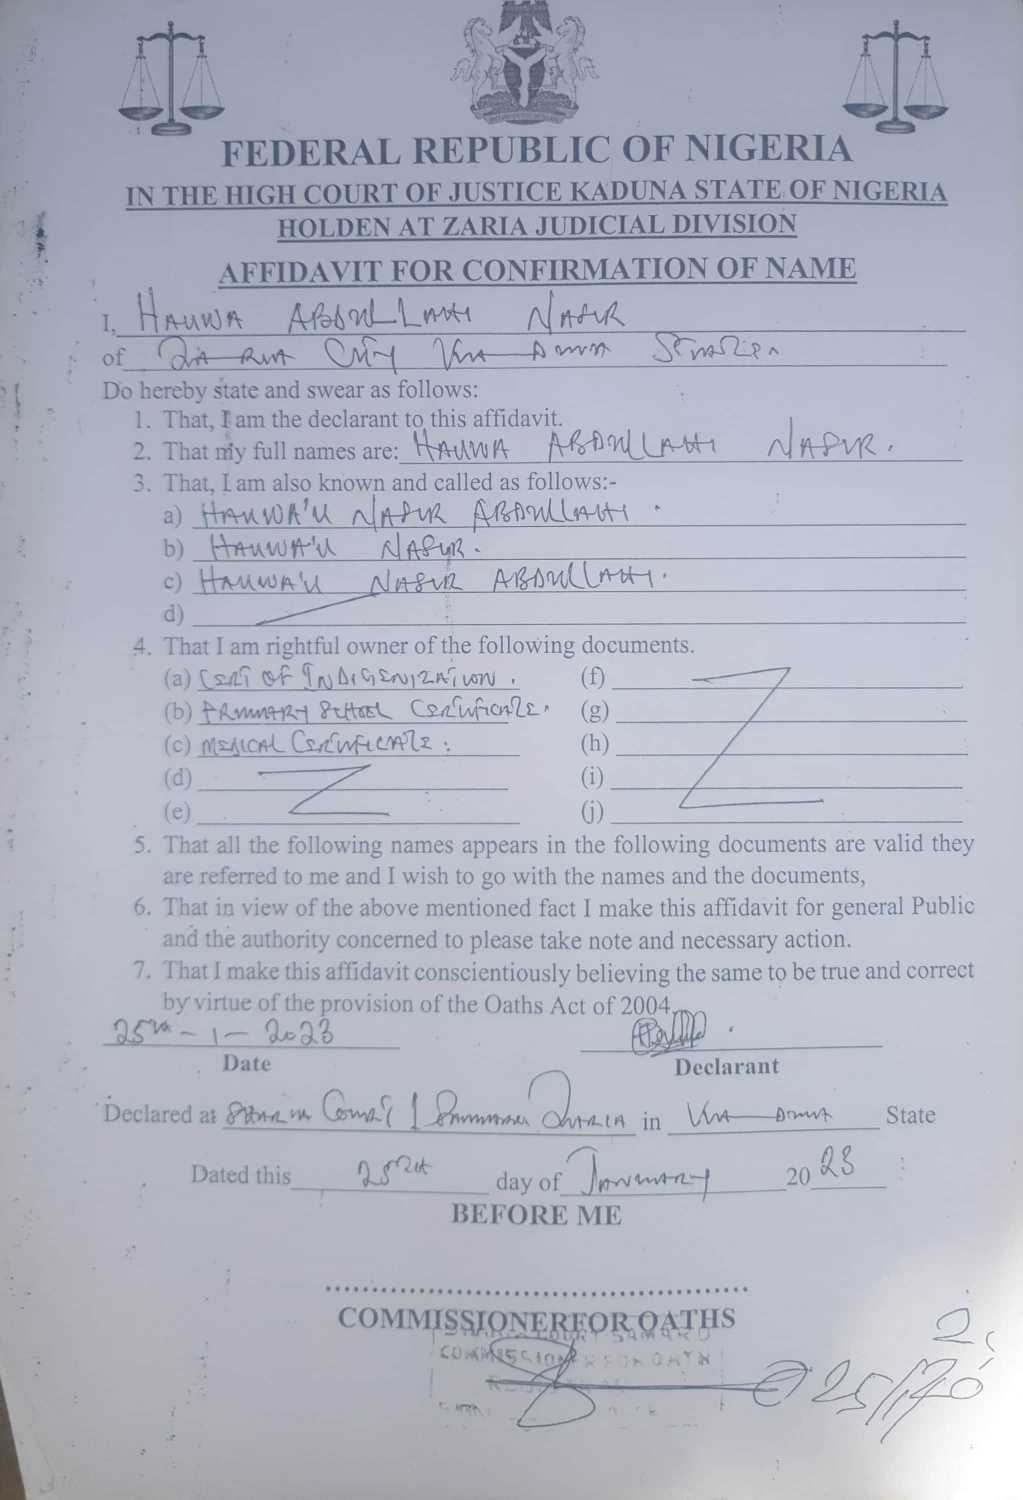 FEDERAL REPUBLIC OF NIGERIA
IN THE HIGH COURT OF JUSTICE KADUNA STATE OF NIGERIA
HOLDEN AT ZARIA JUDICIAL DIVISION
AFFIDAVIT FOR CONFIRMATION OF NAME
I, HAUWA ABDULLAHI NASIR
of ZARIA CITY KADUNA
Do hereby state and swear as follows:
1. That, I am the declarant to this affidavit.
2. That my full names are: HAUWA ABDULLAHI NASIR.
3. That, I am also known and called as follows:-
a) HAUWA'U NASIR ABDULLAHI.
b) HAUWA'U NASIR.
c) HAUWA'U NASIR ABDULLAHI.
d)
4. That I am rightful owner of the following documents.
(a) CERT OF INDIGENIZATION. (f)
(b) PRIMARY SCHOOL CERTIFICATE. (g)
(c) MEDICAL CERTIFICATE. (h)
(d) (i)
(e) (j)
5. That all the following names appears in the following documents are valid they
are referred to me and I wish to go with the names and the documents,
6. That in view of the above mentioned fact I make this affidavit for general Public
and the authority concerned to please take note and necessary action.
7. That I make this affidavit conscientiously believing the same to be true and correct
by virtue of the provision of the Oaths Act of 2004.
25th - 1 - 2023
Date Declarant
Declared at SHARIA COURT 1 SAMARU ZARIA in KADUNA State
Dated this 25th day of JANUARY 2023
BEFORE ME
COMMISSIONERFOR OATHS
SHARIA COURT SAMARU
COMMISSIONER FOR OATH